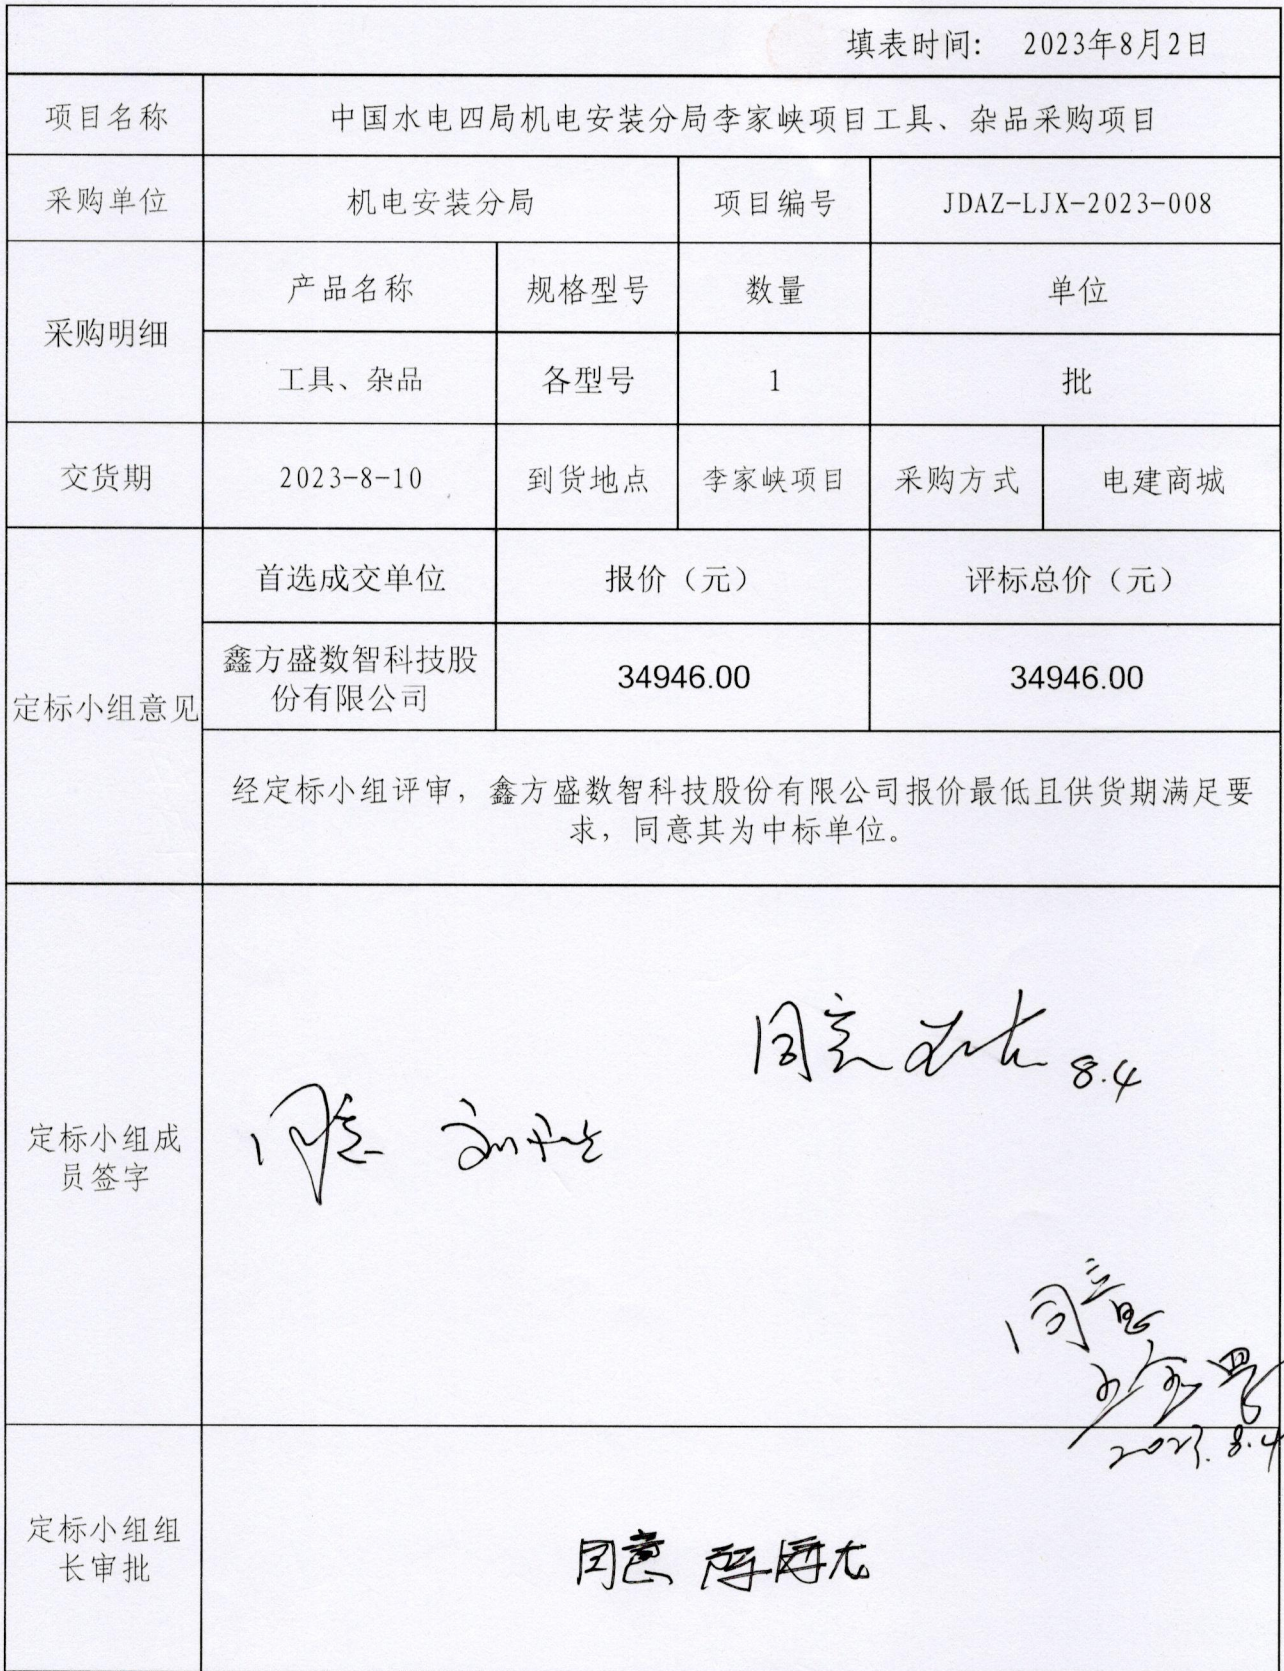 填表时间： 2023年8月2日
项目名称 中国水电四局机电安装分局李家峡项目工具、杂品采购项目
采购单位 机电安装分局 项目编号 JDAZ-LJX-2023-008
采购明细
产品名称 规格型号 数量 单位
工具、杂品 各型号 1 批
交货期 2023-8-10 到货地点 李家峡项目 采购方式 电建商城
定标小组意见
首选成交单位 报价（元） 评标总价（元）
鑫方盛数智科技股
份有限公司
34946.00 34946.00
经定标小组评审，鑫方盛数智科技股份有限公司报价最低且供货期满足要
求，同意其为中标单位。
定标小组成
员签字
同意 8.4
同意
同意
2023.8.4
定标小组组
长审批
同意